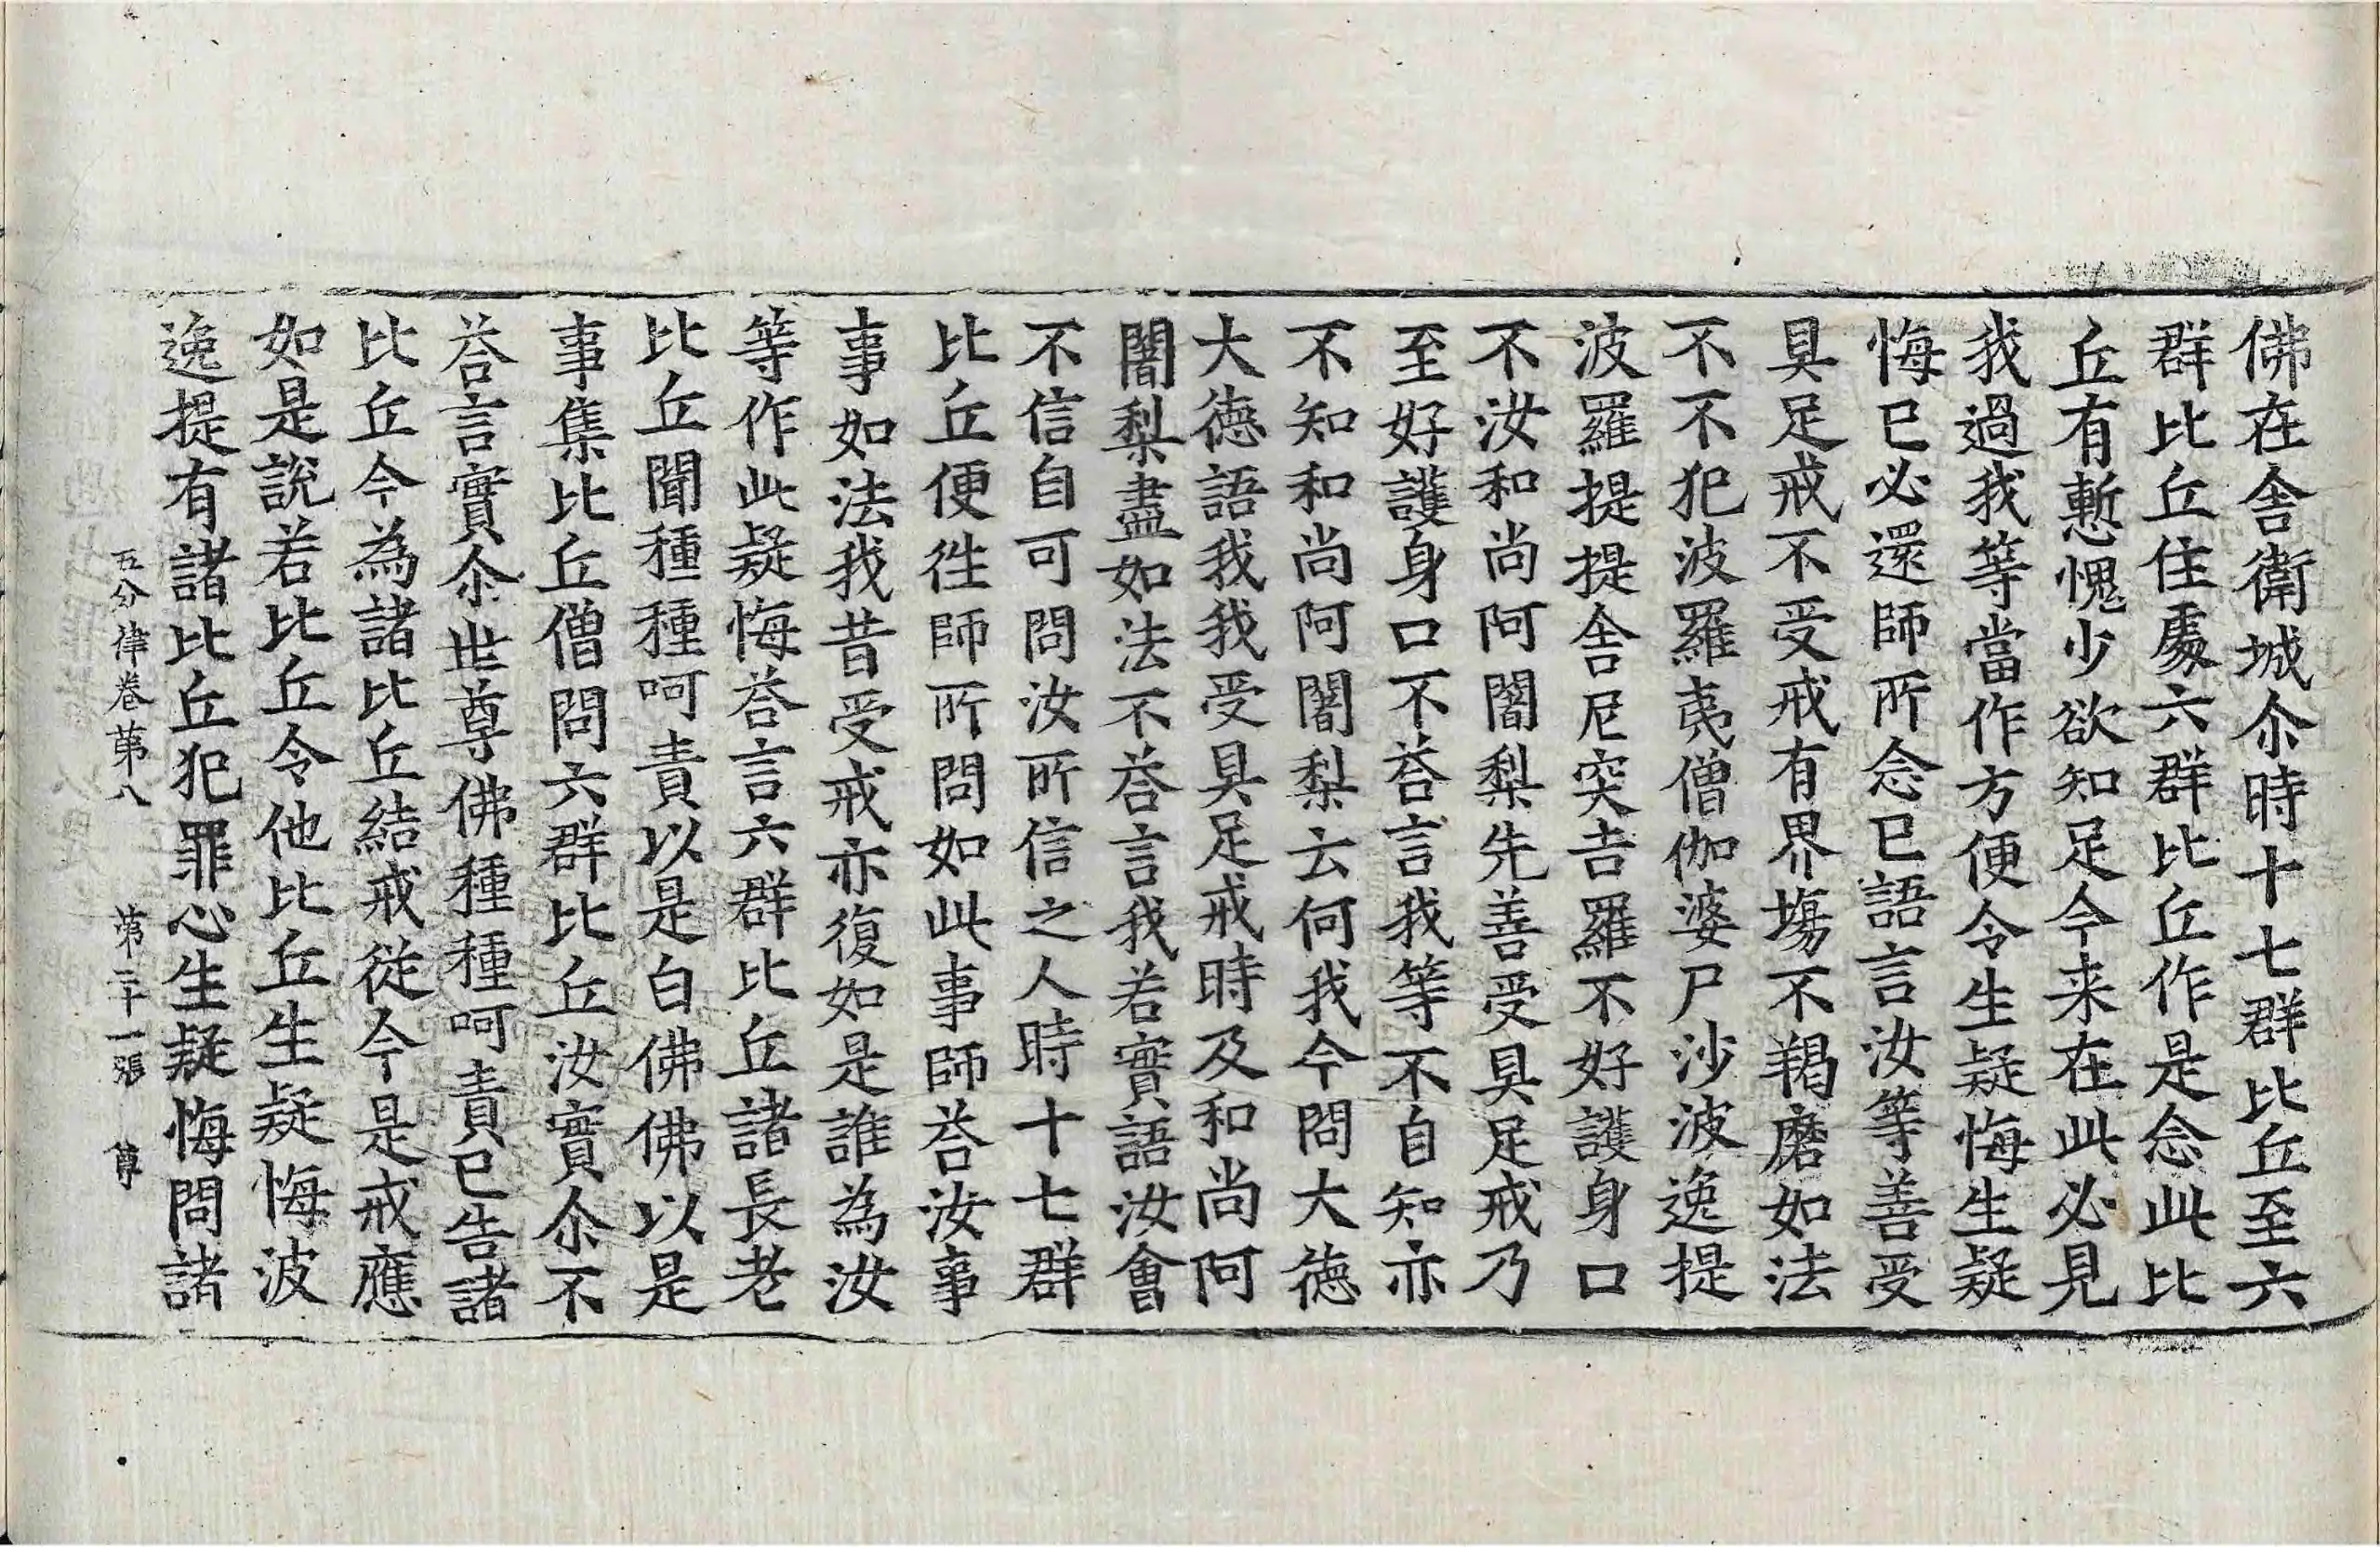 佛在舍衛城尒時十七群比丘至六
群比丘住處六群比丘作是念此比
丘有慙愧少欲知足今来在此必見
我過我等當作方便令生疑悔生疑
悔已必還師所念已語言汝等善受
具足戒不受戒有界塲不羯磨如法
不不犯波羅夷僧伽婆尸沙波逸提
波羅提提舍尼突吉羅不好護身口
不汝和尚阿闍梨先善受具足戒乃
至好護身口不荅言我等不自知亦
不知和尚阿闍梨云何我今問大德
大德語我我受具足戒時及和尚阿
闍梨盡如法不荅言我若實語汝會
不信自可問汝所信之人時十七群
比丘便徃師所問如此事師荅汝事
事如法我昔受戒亦復如是誰為汝
等作此疑悔荅言六群比丘諸長老
比丘聞種種呵責以是白佛佛以是
事集比丘僧問六群比丘汝實尒不
荅言實尒世尊佛種種呵責已告諸
比丘今為諸比丘結戒從今是戒應
如是說若比丘令他比丘生疑悔波
逸提有諸比丘犯罪心生疑悔問諸
五分律卷第八 第二十一張 尊